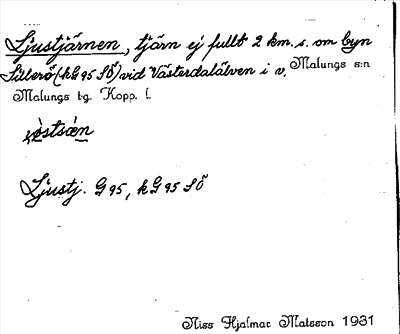 Ljustjärnen, tjärn ej fullt 2 km. s. om byn
Sillerö (kG 95 SÖ) vid Västerdalälven i v. Malungs s:n
Malungs tg. Kopp. l.
Ljustj. G 95, kG 95 SÖ
Niss Hjalmar Matsson 1931